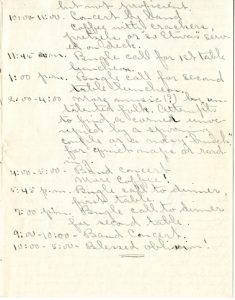 but not proficient.
10:00-11:00. Concert by band.
Coffee with crackers,
pretzel, or "so Etwas" serv-
ed on deck.
11:45 a.m. Bugle call for 1st table
luncheon.
1:00 p.m. Bugle call for second
table luncheon.
2:00-4:00 More music(?) by un-
talented folk. Attempts
to find a corner unoc-
cupied by a spooning
couple or a noisy bunch
for quiet naps or read-
ing.
4:00-5:00 - Band concert
More Coffee!
5:45 p.m. Bugle call to dinner,
first table.
7:00 p.m. Bugle call to dinner
for second table.
9:00-10:00 - Band Concert.
10:00 - 5:00 - Blessed oblivion!